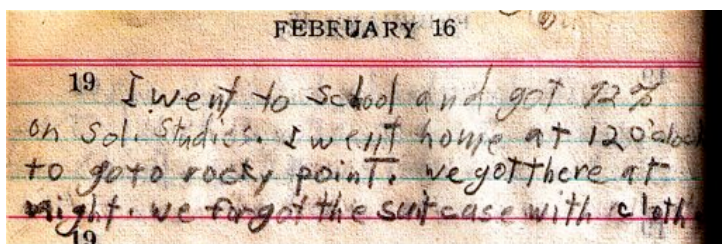 FEBRUARY 16
19 I went to school and got 92%
on sol. Studies. I went home at 12 o'clock
to go to rocky point. we got there at
night. we forgot the suitcase with cloth
19